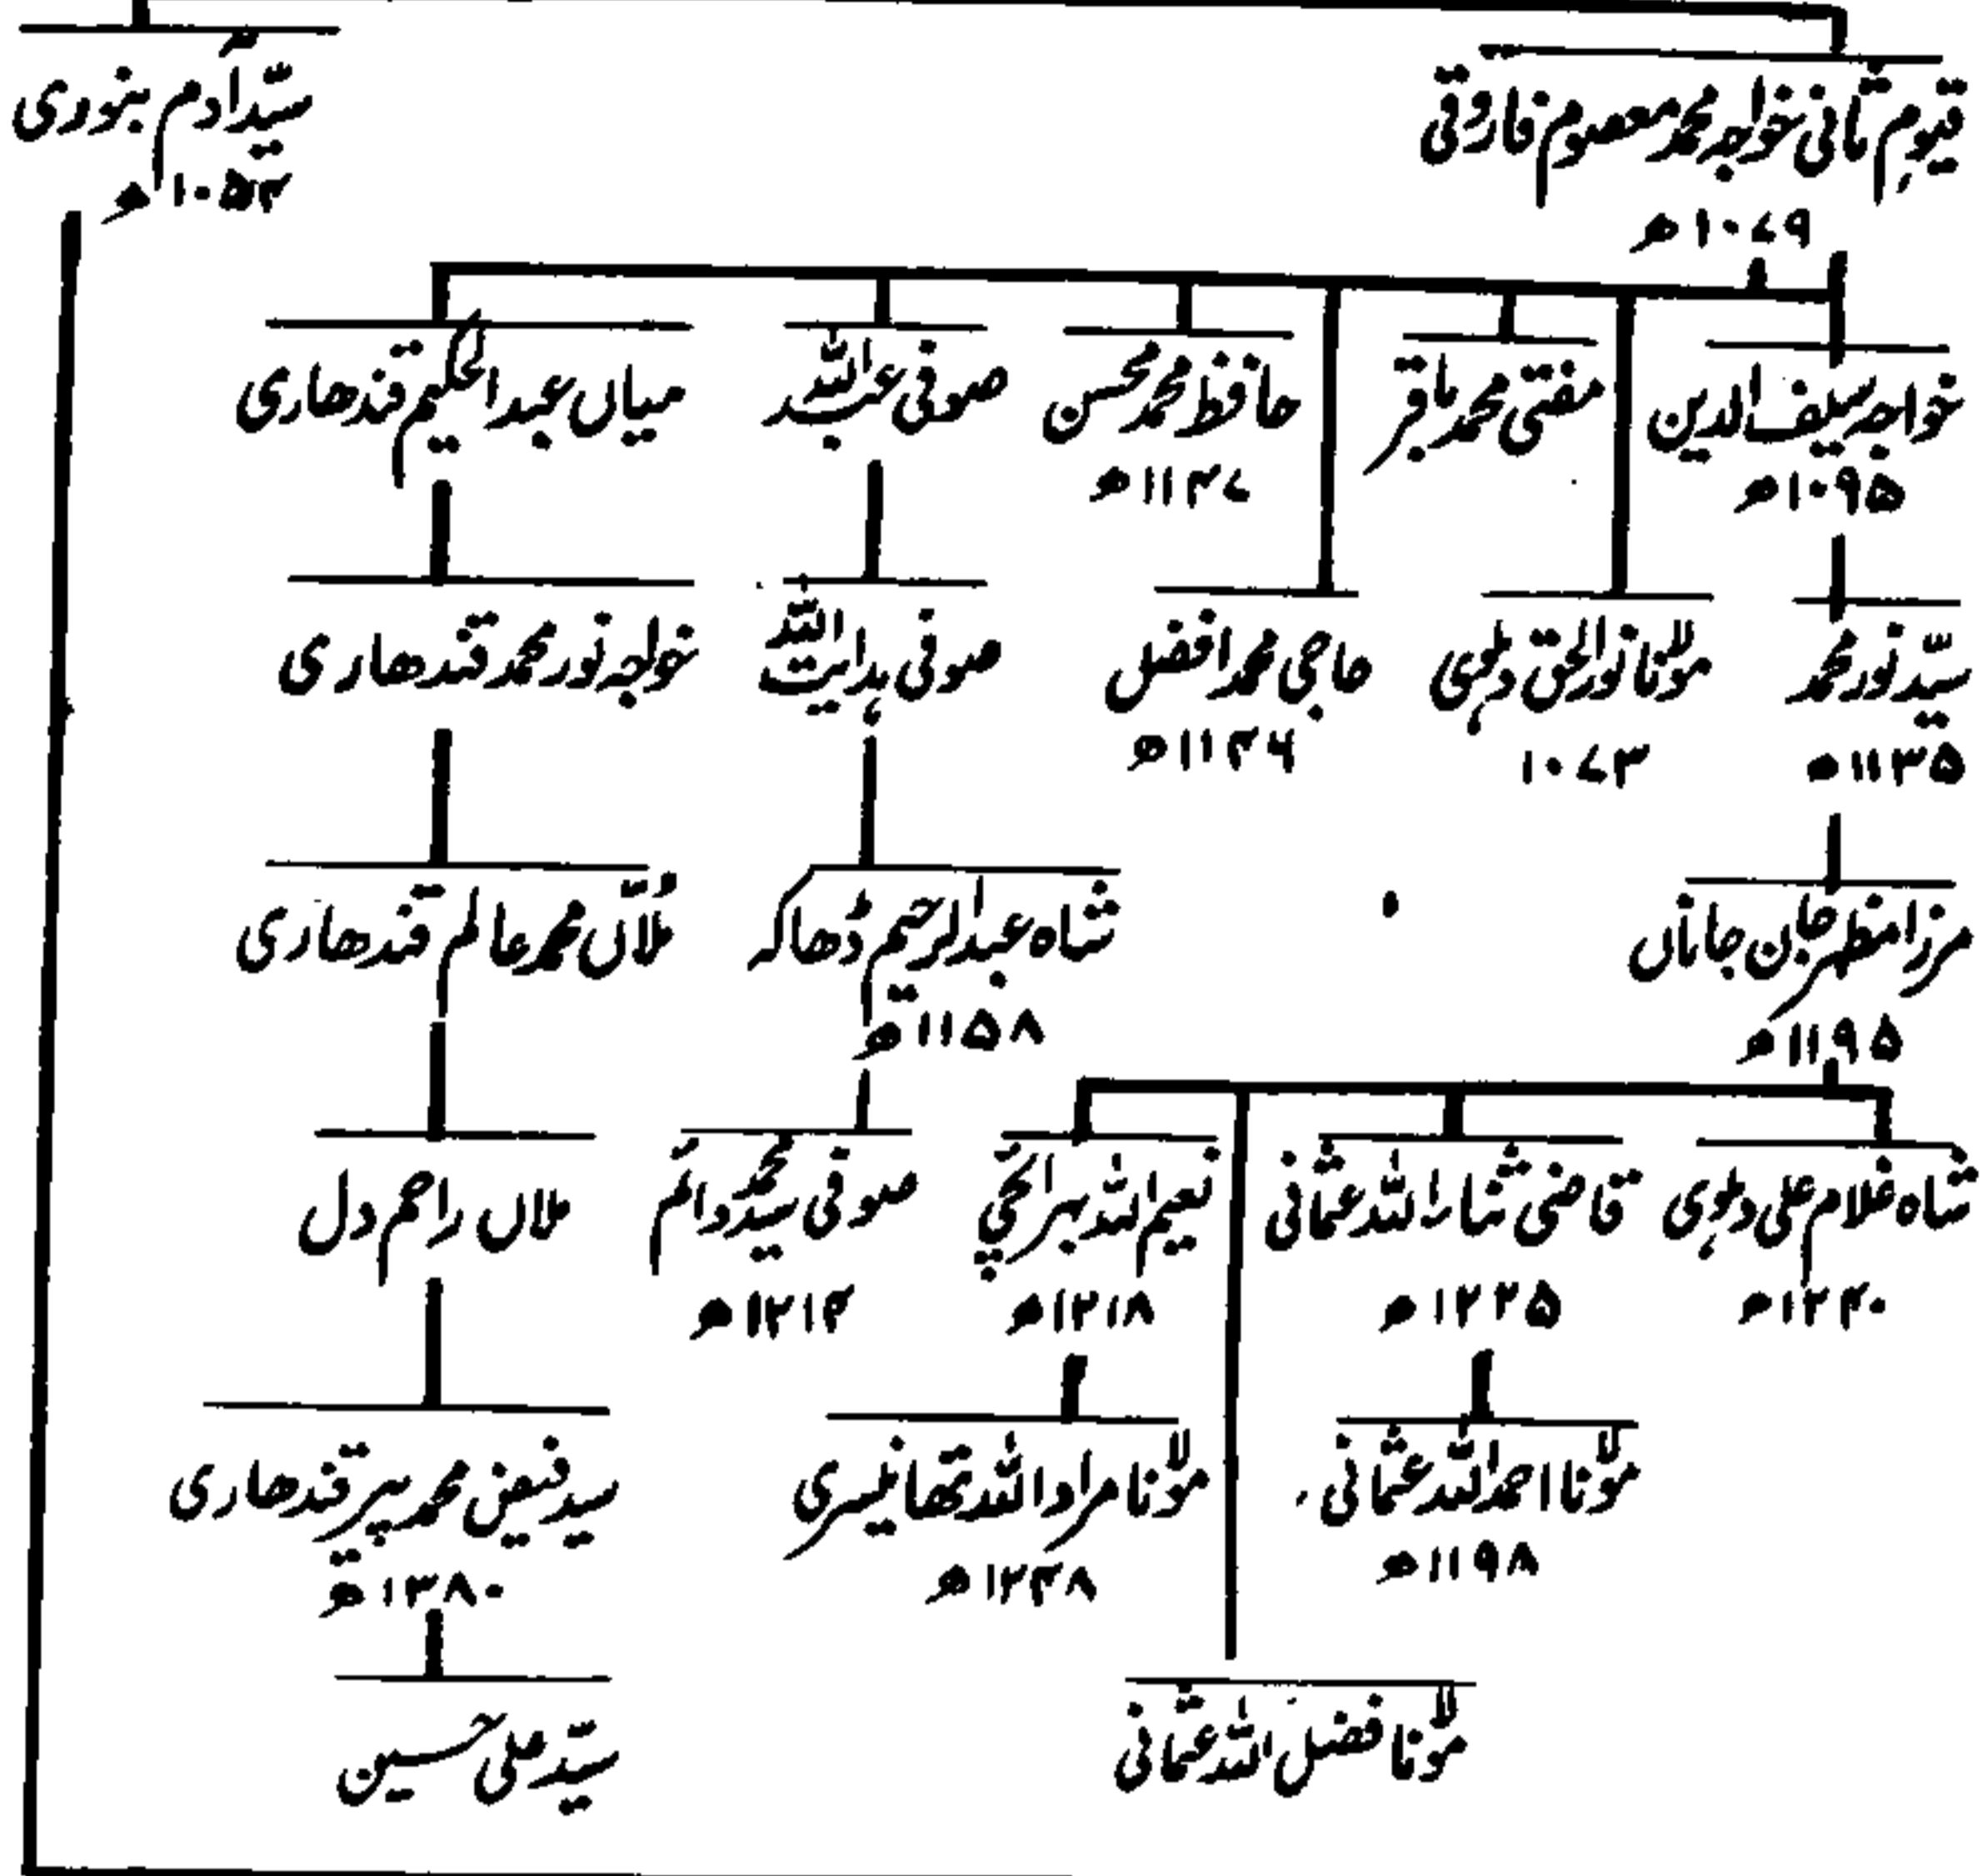 قیوم ثانی خواجہ محمد معصوم فاروقی
۱۰۷۹ھ
سیّد آدم بنوری
۱۰۵۳ھ
خواجہ سیف الدین
۱۰۹۵ھ
مفتی محمد باقر
حافظ محمد محسن
۱۱۴۷ھ
صوفی عبد اللہ
میاں عبد الحکیم قندھاری
سیّد نور محمد
۱۱۳۵ھ
مولٰنا نور الحق دہلوی
۱۰۷۳
حاجی محمد افضل
۱۱۴۶ھ
صوفی ہدایت اللہ
خواجہ نور محمد قندھاری
مرزا مظہر جان جاناں
۱۱۹۵ھ
شاہ عبد الرحیم ڈھاکہ
۱۱۵۸ھ
مُلّاں محمد عالم قندھاری
شاہ غلام علی دہلوی
۱۲۴۰ھ
قاضی ثناء اللہ عثمانی
۱۲۲۵ھ
نعیم اللہ بہرائچی
۱۲۱۸ھ
صوفی محمد سید دائم
۱۲۱۴ھ
ملاں راحم دل
مولانا احمد اللہ عثمانی
۱۱۹۸ھ
مولانا مراد اللہ تھانیسری
۱۲۴۸ھ
سید فیض محمد پیر قندھاری
۱۳۸۰ھ
مولانا فضل اللہ عثمانی
سیّد علی حسین